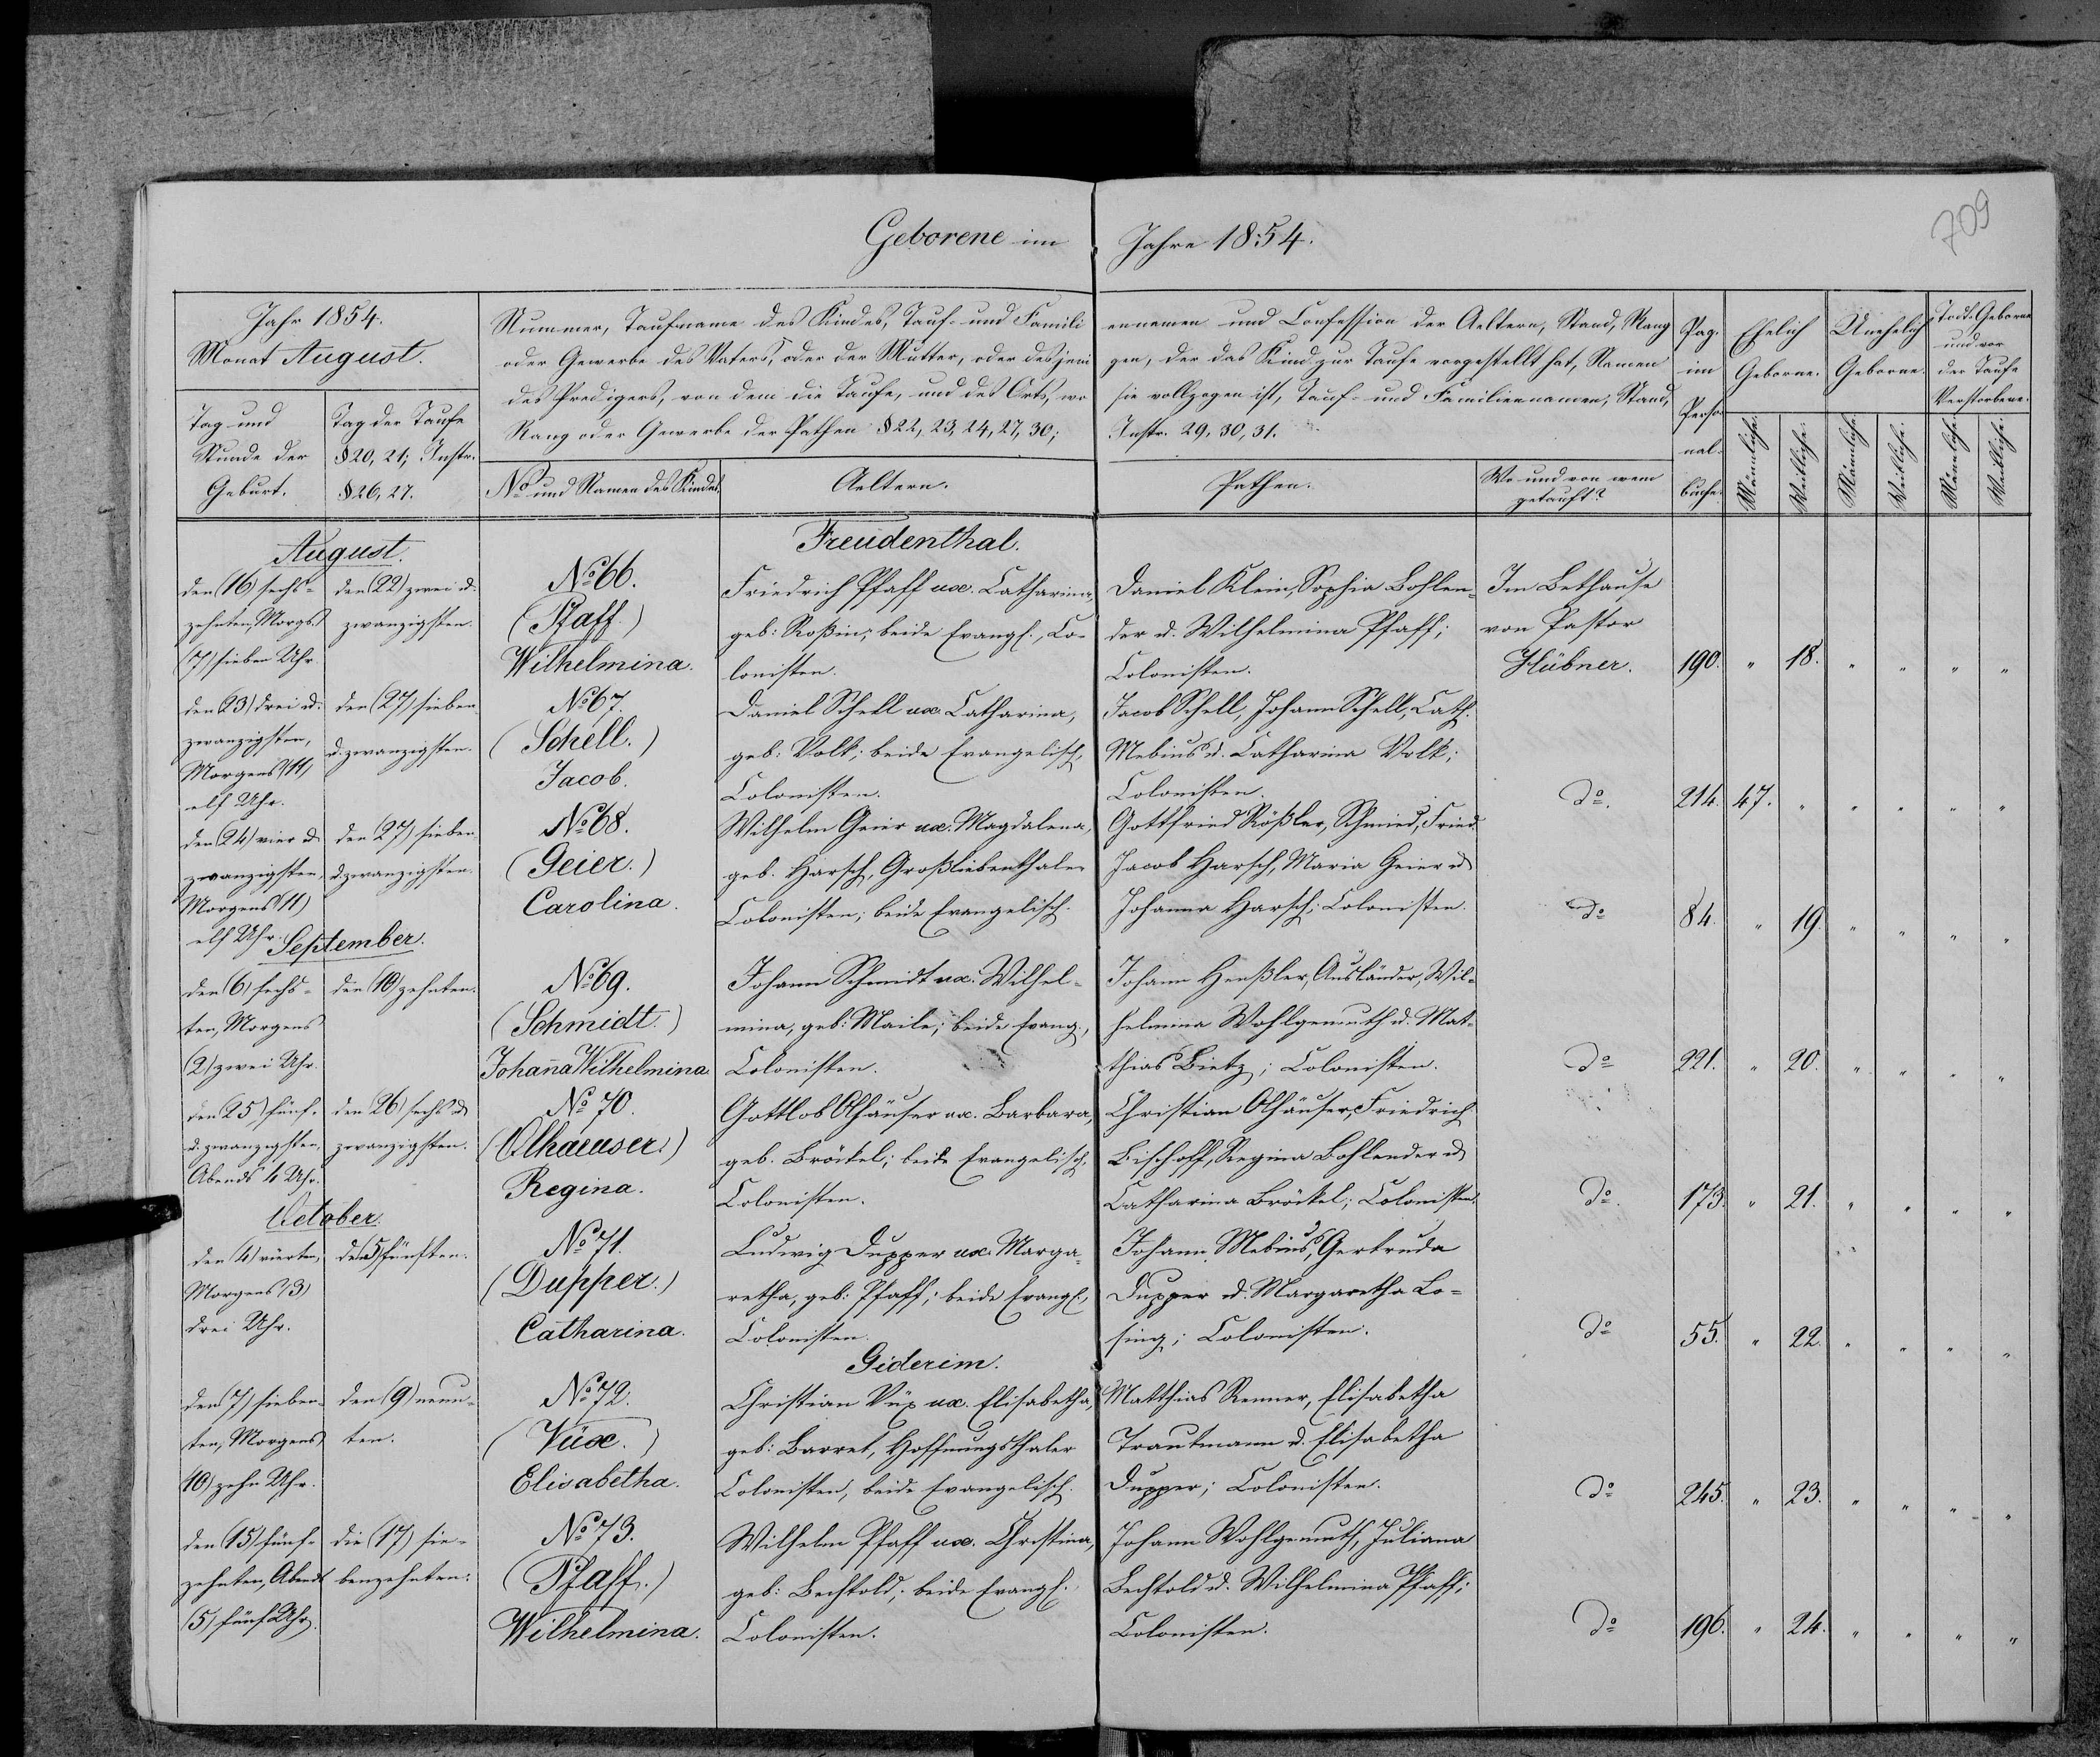 Geborene im Jahre 1854.
709
Jahr 1854.
Monat August.
Tag und
Stunde der
Geburt.
Tag der Taufe
§ 20, 21; Instr.
§ 26, 27.
Nummer, Taufname des Kindes, Tauf- und Famili
oder Gewerbe des Vaters, oder der Mutter, oder desjeni
des Predigers, von dem die Taufe, und des Orts, wo
Rang oder Gewerbe der Pathen § 22, 23, 24, 27, 30;
ennamen und Confession der Aeltern, Stand, Rang
gen, der das Kind zur Taufe vorgestellt hat, Namen
sie vollzogen ist, Tauf- und Familiennamen, Stand,
Instr. 29, 30, 31.
No und Namen des Kindes.
Aeltern.
Pathen.
Wo und von wem
getauft?
Pag.
im
Perso
nal-
buche.
Ehelich
Geborne.
Unehelich
Geborne.
Todt-Geborne
und vor
der Taufe
Verstorbene.
Männliche.
Weibliche.
Männliche.
Weibliche.
Männliche.
Weibliche.
August.
Freudenthal.
den (16) sechs-
zehnten, Morgs.
(7) sieben Uhr.
den (22) zwei u.
zwanzigsten.
No 66.
(Pfaff.)
Wilhelmina.
Friedrich Pfaff ux. Catharina,
geb: Roßin; beide Evangl., Co-
lonisten.
Daniel Klein, Sophia Bohlen-
der u. Wilhelmina Pfaff;
Colonisten.
Im Bethause
von Pastor
Hübner.
190. " 18. " " " "
den 23) drei u.
zwanzigsten,
Morgens (11)
elf Uhr.
den (27) sieben
u. zwanzigsten.
No 67.
(Schell.)
Jacob.
Daniel Schell ux. Catharina,
geb: Volk; beide Evangelisch,
Colonisten.
Jacob Schell, Johann Schell, Cath.
Mebius u. Catharina Volk;
Colonisten.
do.
214. 47. " " " " "
den 24) vier u
zwanzigsten,
Morgens (11)
elf Uhr.
den 27) sieben
u. zwanzigsten.
No 68.
(Geier.)
Carolina.
Wilhelm Geier ux. Magdalena,
geb. Harsch, Großliebenthaler
Colonisten; beide Evangelisch.
Gottfried Rößler, Schmied, Fried.
Jacob Harsch, Maria Geier u
Johanna Harsch; Colonisten.
do
84. " 19. " " " "
September.
den (6) sechs-
ten, Morgens
(2) zwei Uhr.
den (10) zehnten.
No 69.
(Schmidt.)
Johanna Wilhelmina
Johann Schmidt ux. Wilhel-
mina, geb: Maile; beide Evang.,
Colonisten.
Johann Henßler, Ausländer, Wil-
helmina Wohlgemuth u. Mat-
thias Bietz; Colonisten.
do
221. " 20. " " " "
den 25) fünf-
u. zwanzigsten,
Abends 4 Uhr.
den (26) sechs u
zwanzigsten.
No 70.
(Olhaeuser.)
Regina.
Gottlob Olhäuser ux. Barbara,
geb. Bröckel; beide Evangelisch,
Colonisten.
Christian Olhäuser, Friedrich
Bischoff, Regina Bohlender u
Catharina Bröckel; Colonisten.
do.
173. " 21. " " " "
October.
den (4) vierten,
Morgens (3)
drei Uhr.
den (5) fünften.
No 71.
(Dupper.)
Catharina.
Ludwig Dupper ux. Marga-
retha, geb: Pfaff; beide Evangl.,
Colonisten.
Johann Mebius, Gertruda
Dupper u. Margaretha Lo-
sing; Colonisten.
do
55. " 22. " " " "
Giderim.
den (7) sieben-
ten, Morgens
10) zehn Uhr.
den (9) neun-
ten.
No 72.
(Vüx.)
Elisabetha.
Christian Vüx ux. Elisabetha,
geb: Barret, Hoffnungsthaler
Colonisten, beide Evangelisch.
Matthias Renner, Elisabetha
Trautmann u. Elisabetha
Dupper; Colonisten.
do
245. " 23. " " " "
den (15) fünf-
zehnten, Abends
(5) fünf Uhr.
die (17) sie-
benzehnten.
No 73.
(Pfaff.)
Wilhelmina.
Wilhelm Pfaff ux. Christina,
geb: Bechtold; beide Evangl.
Colonisten.
Johann Wohlgemuth, Juliana
Bechtold u. Wilhelmina Pfaff;
Colonisten.
do
196. " 24. " " " "